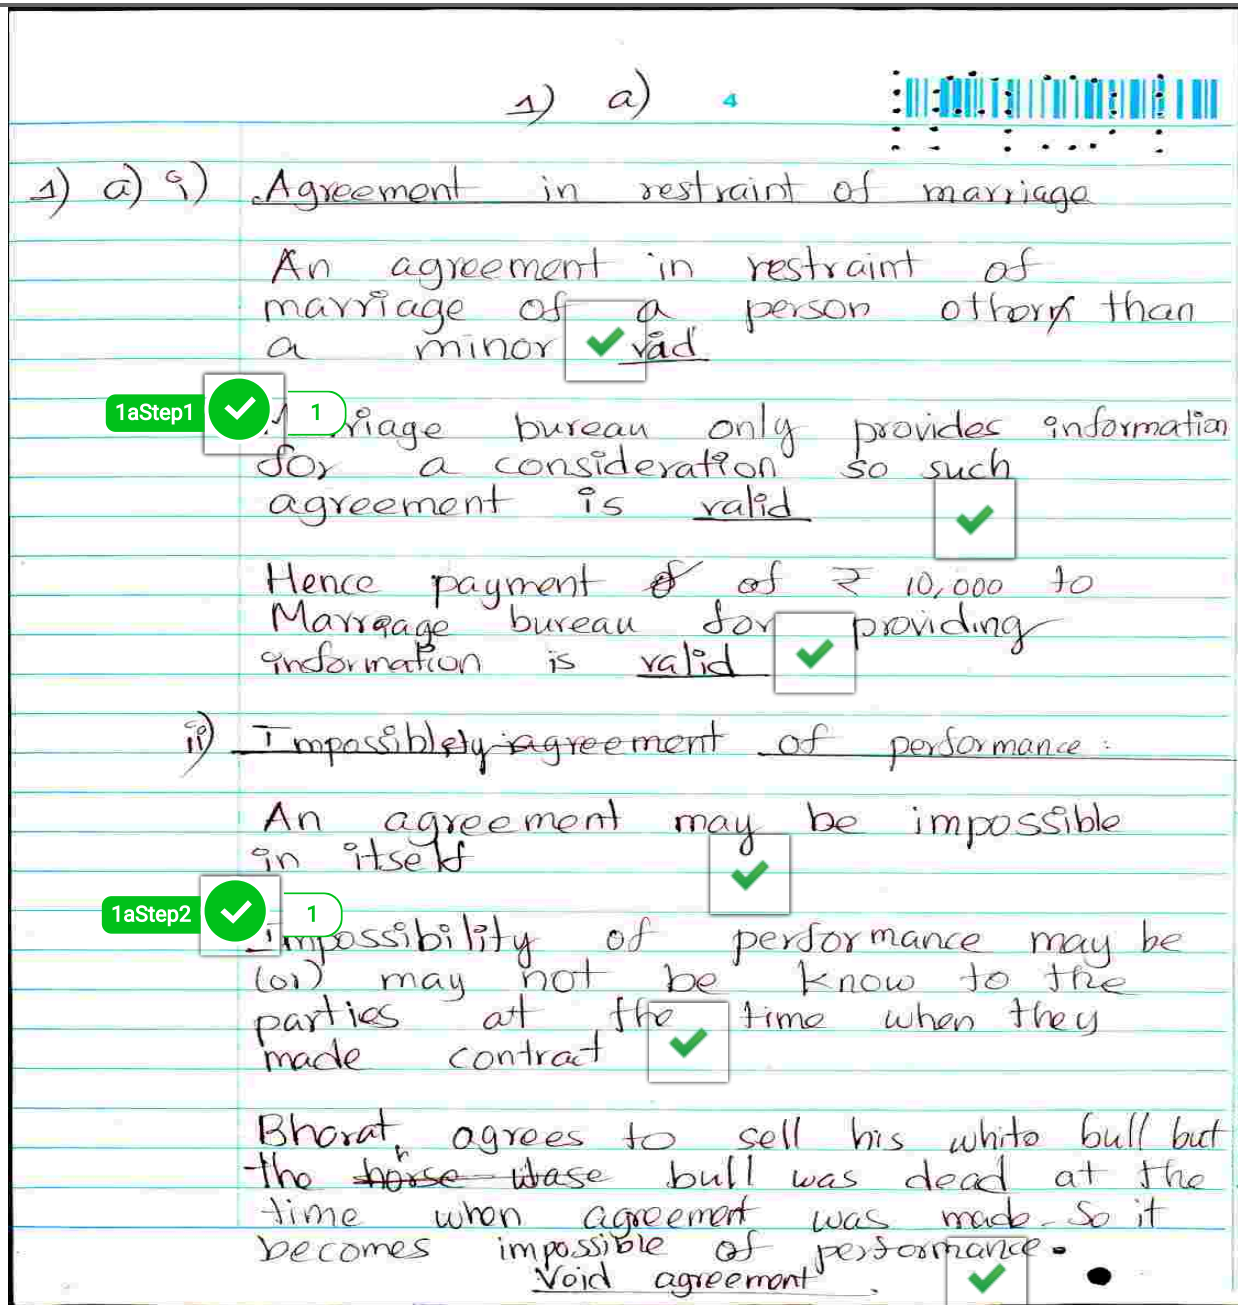 1) a) 4
1) a) i) Agreement in restraint of marriage
An agreement in restraint of
marriage of a person other than
a minor void
1aStep1 1
riage bureau only provides information
for a consideration so such
agreement is valid
Hence payment of of ₹ 10,000 to
Marraage bureau for providing
information is valid
ii) Impossiblety agreement of performance :
An agreement may be impossible
in itself
1aStep2 1
Impossibility of performance may be
(or) may not be know to the
parties at the time when they
made contract
Bharat, agrees to sell his white bull but
the horse wase bull was dead at the
time when agreement was made. So it
becomes impossible of performance.
Void agreement.